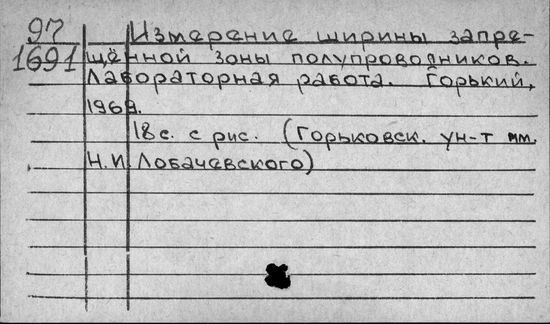 97 Измерение ширины запре-
1691 щённой зоны полупроводников.
Лабораторная работа. Горький,
1969.
18 с. с рис. (Горьковск. ун-т им.
Н.И. Лобачевского)